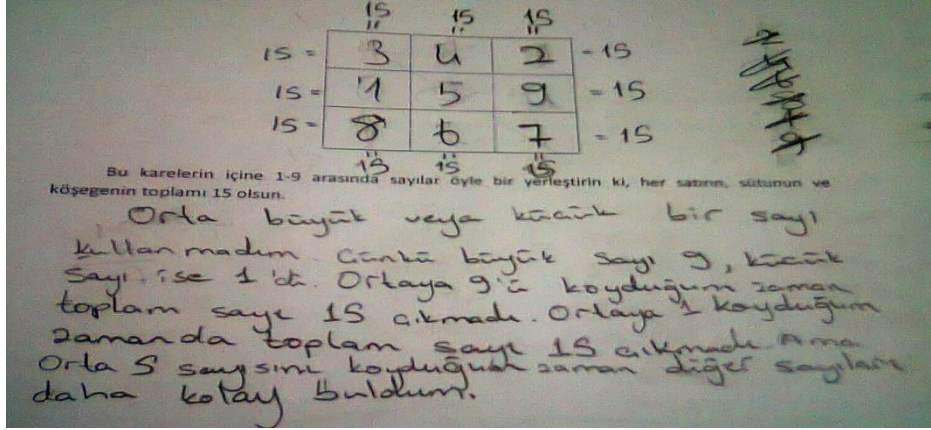 15 15 15
15 = 3 4 2 = 15
15 = 1 5 9 = 15
15 = 8 6 7 = 15
15 15 15
Bu karelerin içine 1-9 arasında sayılar öyle bir yerleştirin ki, her satırın, sütunun ve
köşegenin toplamı 15 olsun.
Orta büyük veya küçük bir sayı
kullanmadım. Çünkü büyük sayı 9, küçük
sayı ise 1'di. Ortaya 9'u koyduğum zaman
toplam sayı 15 çıkmadı. Ortaya 1 koyduğum
zamanda toplam sayı 15 çıkmadı. Ama
Orta 5 sayısını koyduğum zaman diğer sayıları
daha kolay buldum.